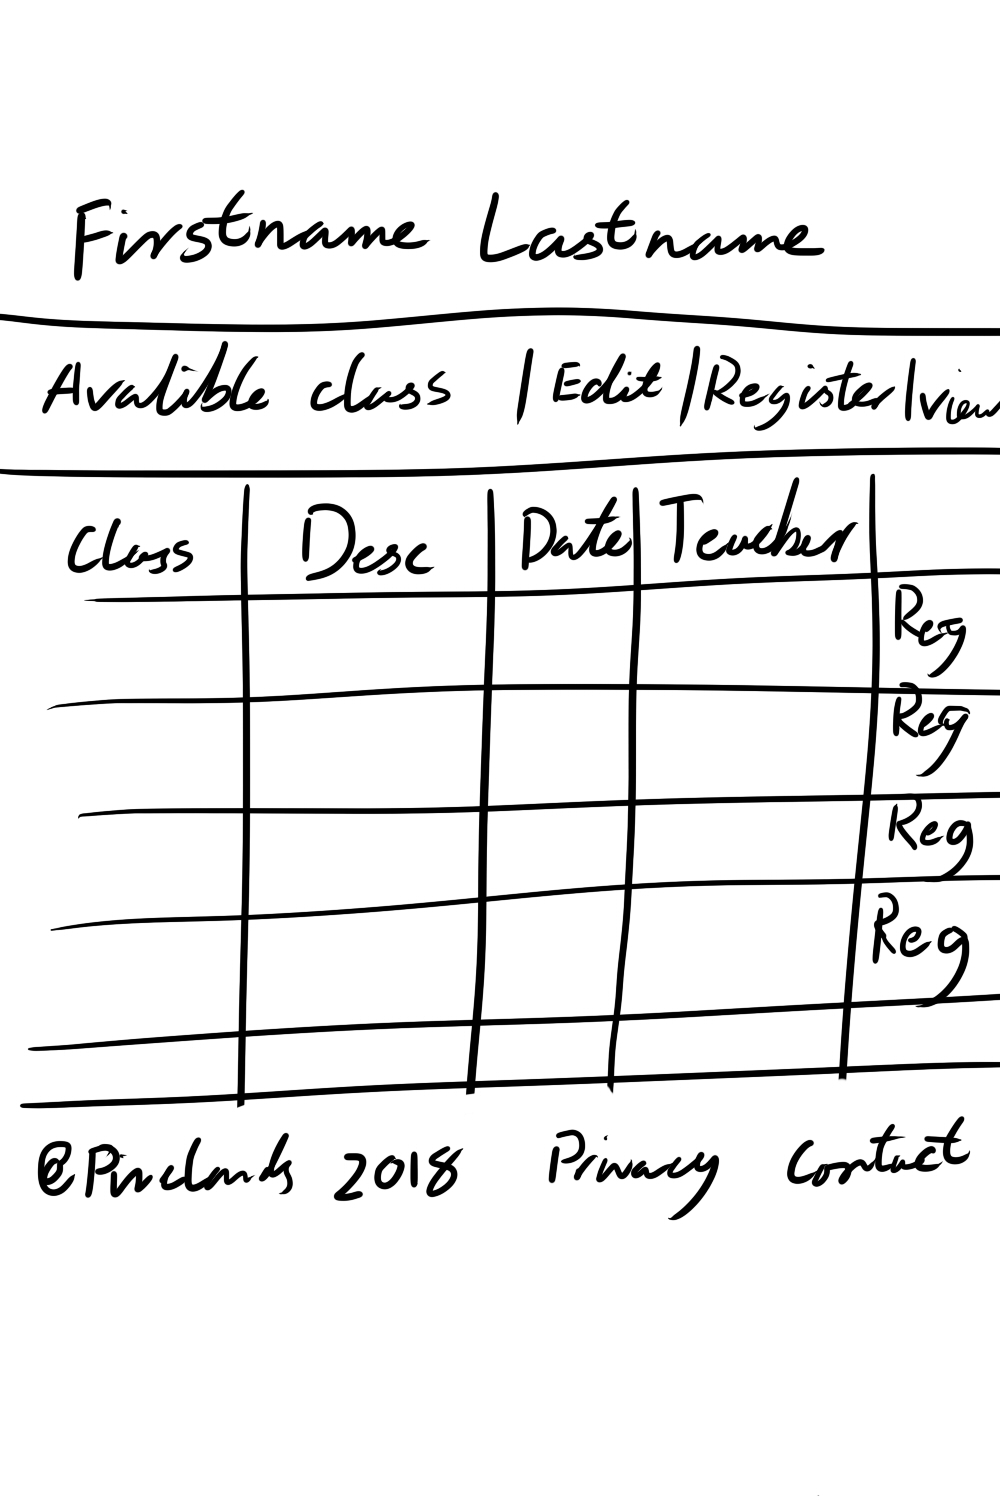 Firstname Lastname
Avalible class / Edit / Register / view
Class Desc Date Teacher
Reg
Reg
Reg
Reg
@Pinelands 2018 Privacy Contact